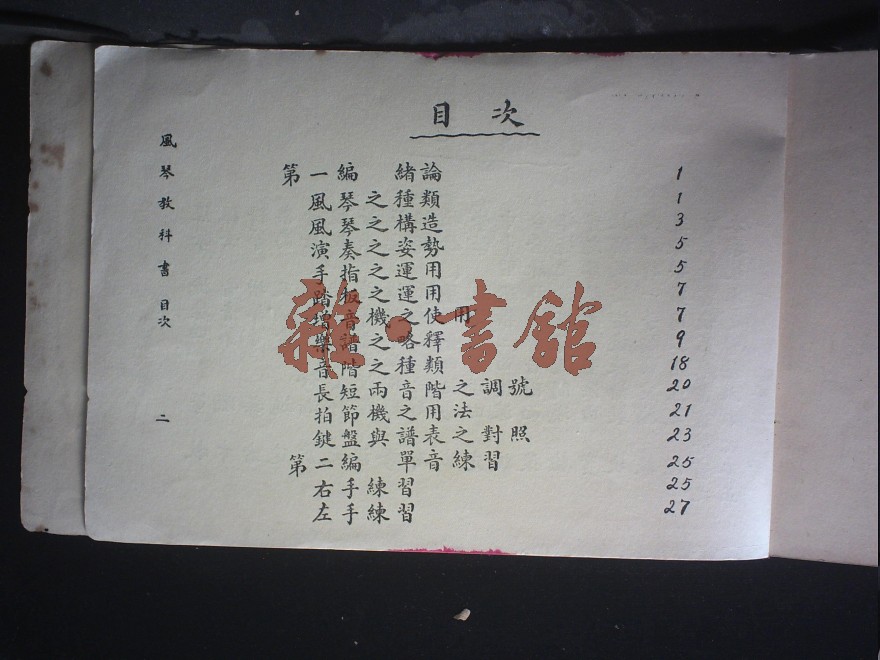 目次
第一編 緒論 1
風琴之種類 1
風琴之構造 3
演奏之姿勢 5
手指之運用 5
踏板之運用 7
增音機之使用 7
樂譜之略釋 9
音階之種類 18
長短兩音階之調號 20
拍節機之用法 21
鍵盤與譜表之對照 23
第二編 單音練習 25
右手練習 25
左手練習 27
風琴教科書 目次 二
雜·書館